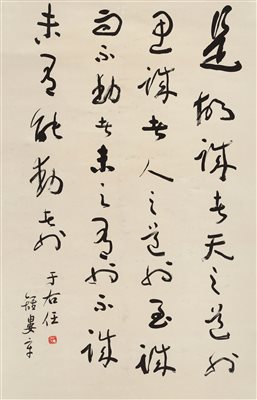 是故誠者天之道也
思誠者人之道也至誠
而不動者未之有也不誠
未有能動者也
于右任